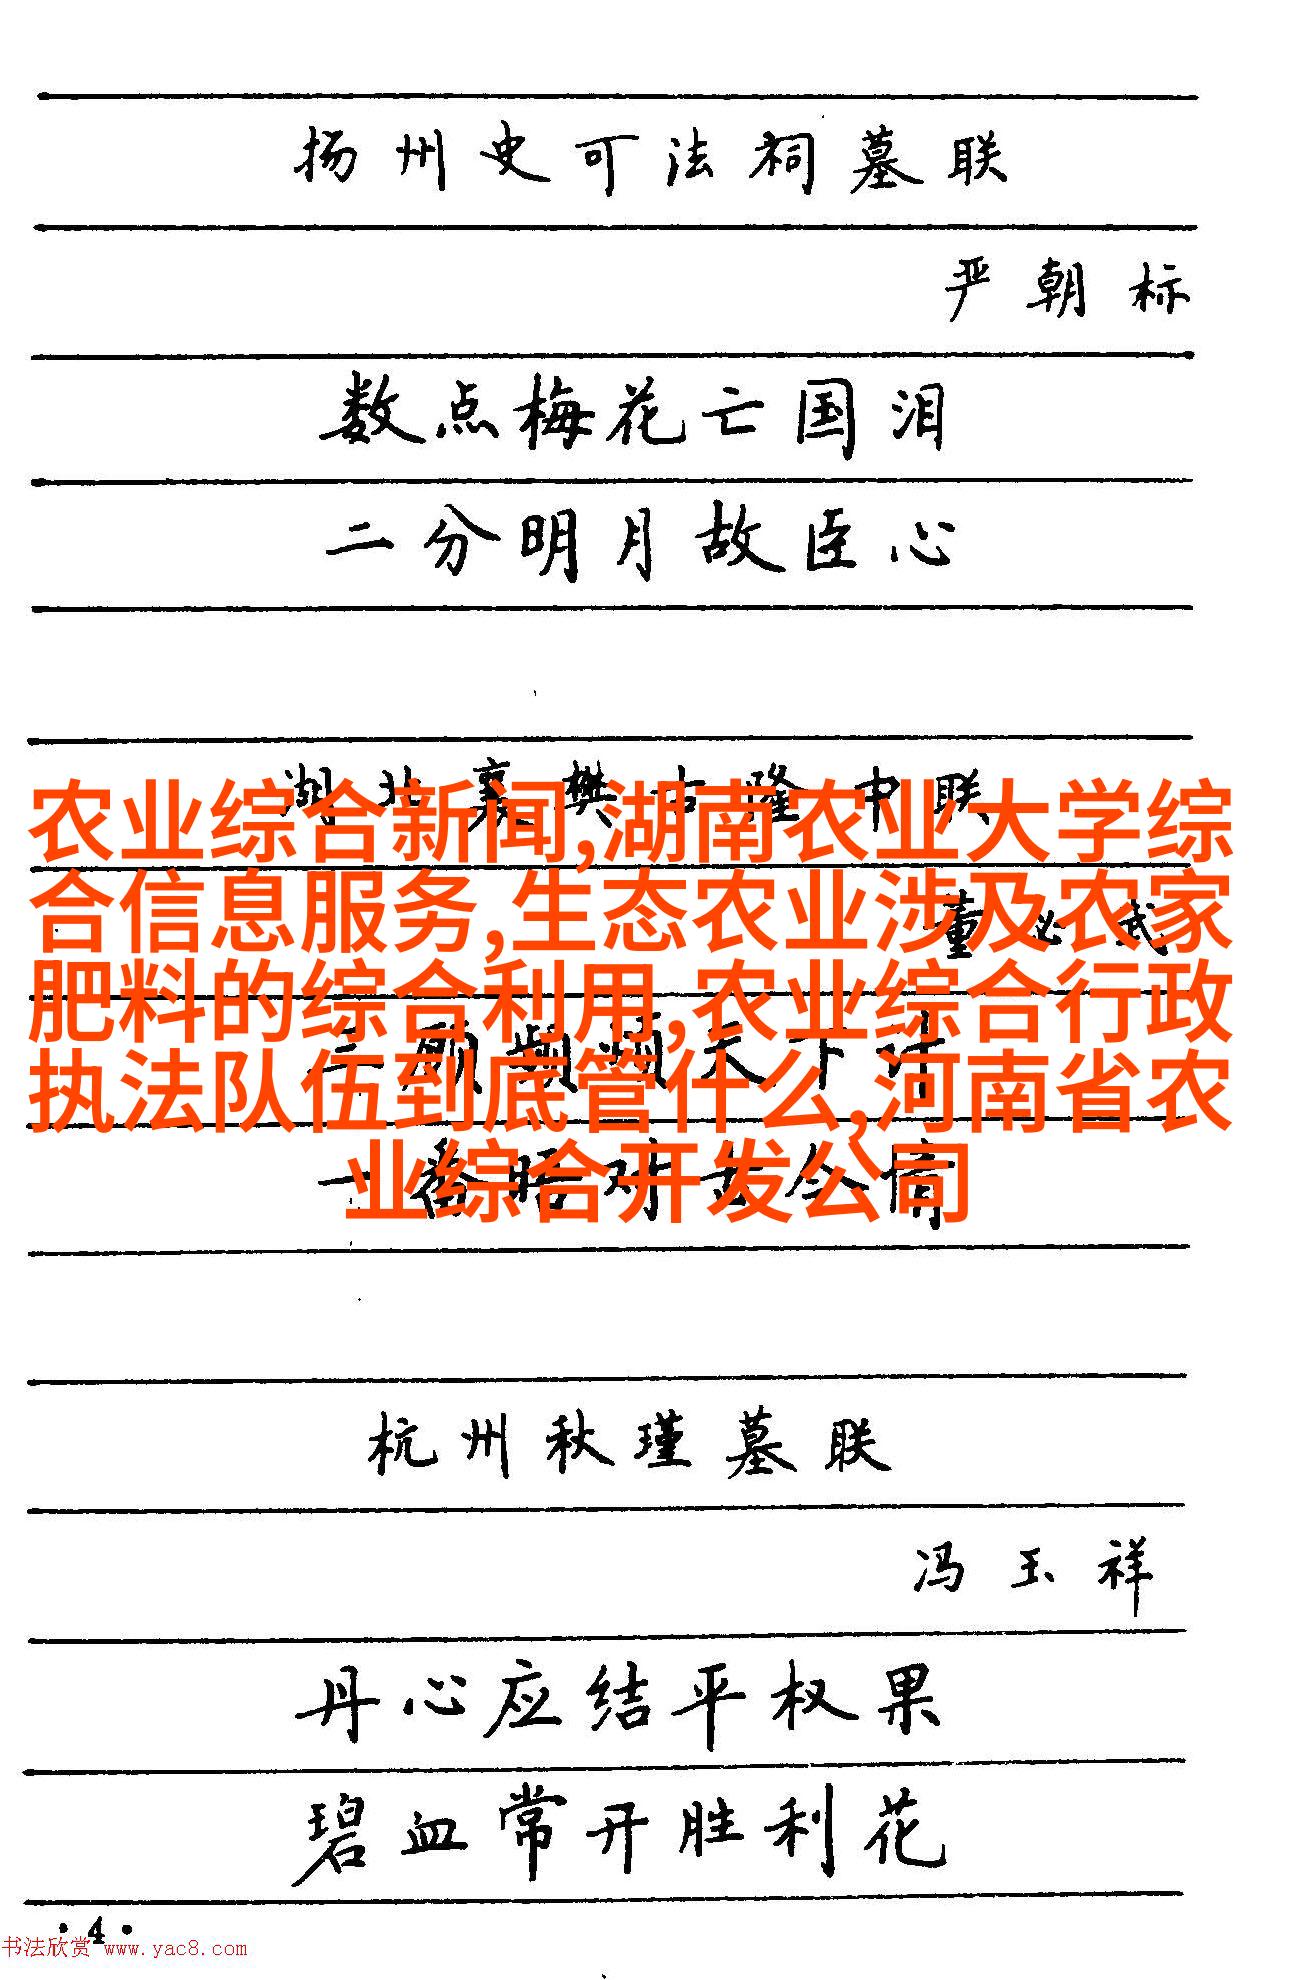 扬州史可法祠墓联
严朝标
数点梅花亡国泪
二分明月故臣心
湖北襄樊古隆中联
农业综合新闻,湖南农业大学综
合信息服务,生态农业涉及农家
董必武
肥料的综合利用,农业综合行政
三顾频烦天下计
执法队伍到底管什么,河南省农
一番晤对古今情
业综合开发公司
杭州秋瑾墓联
冯玉祥
丹心应结平权果
碧血常开胜利花
·4·
书法欣赏 www.yac8.com